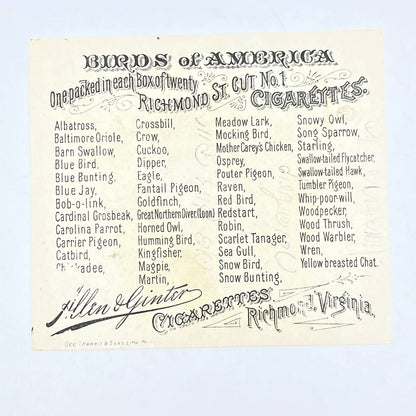 BIRDS of AMERICA
One packed in each Box of twenty
RICHMOND ST. CUT No. 1
CIGARETTES.
Albatross,
Baltimore Oriole,
Barn Swallow,
Blue Bird,
Blue Bunting,
Blue Jay,
Bob-o-link,
Cardinal Grosbeak,
Carolina Parrot,
Carrier Pigeon,
Catbird,
Crossbill,
Crow,
Cuckoo,
Dipper,
Eagle,
Fantail Pigeon,
Goldfinch,
Great Northern Diver (Loon)
Horned Owl,
Humming Bird,
Kingfisher,
Magpie,
Martin,
Meadow Lark,
Mocking Bird,
Mother Carey's Chicken,
Osprey,
Pouter Pigeon,
Raven,
Red Bird,
Redstart,
Robin,
Scarlet Tanager,
Sea Gull,
Snow Bird,
Snow Bunting,
Snowy Owl,
Song Sparrow,
Starling,
Swallow-tailed Flycatcher,
Swallow-tailed Hawk,
Tumbler Pigeon,
Whip-poor-will,
Woodpecker,
Wood Thrush,
Wood Warbler,
Wren,
Yellow breasted Chat.
Allen & Ginter
CIGARETTES
Richmond, Virginia.
GEO. HARRIS & SONS LITH.